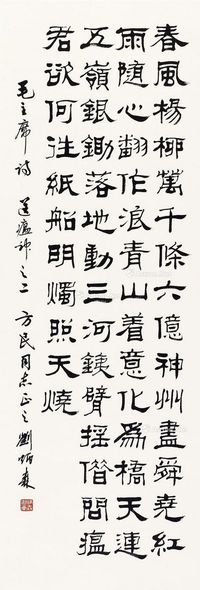 春風楊柳萬千條六億神州盡舜堯紅
雨隨心翻作浪青山着意化為橋天連
五嶺銀鋤落地動三河銕臂搖借問瘟
君欲何往紙船明燭照天燒
毛主席詩 送瘟神之二 方民同志正之 劉炳森